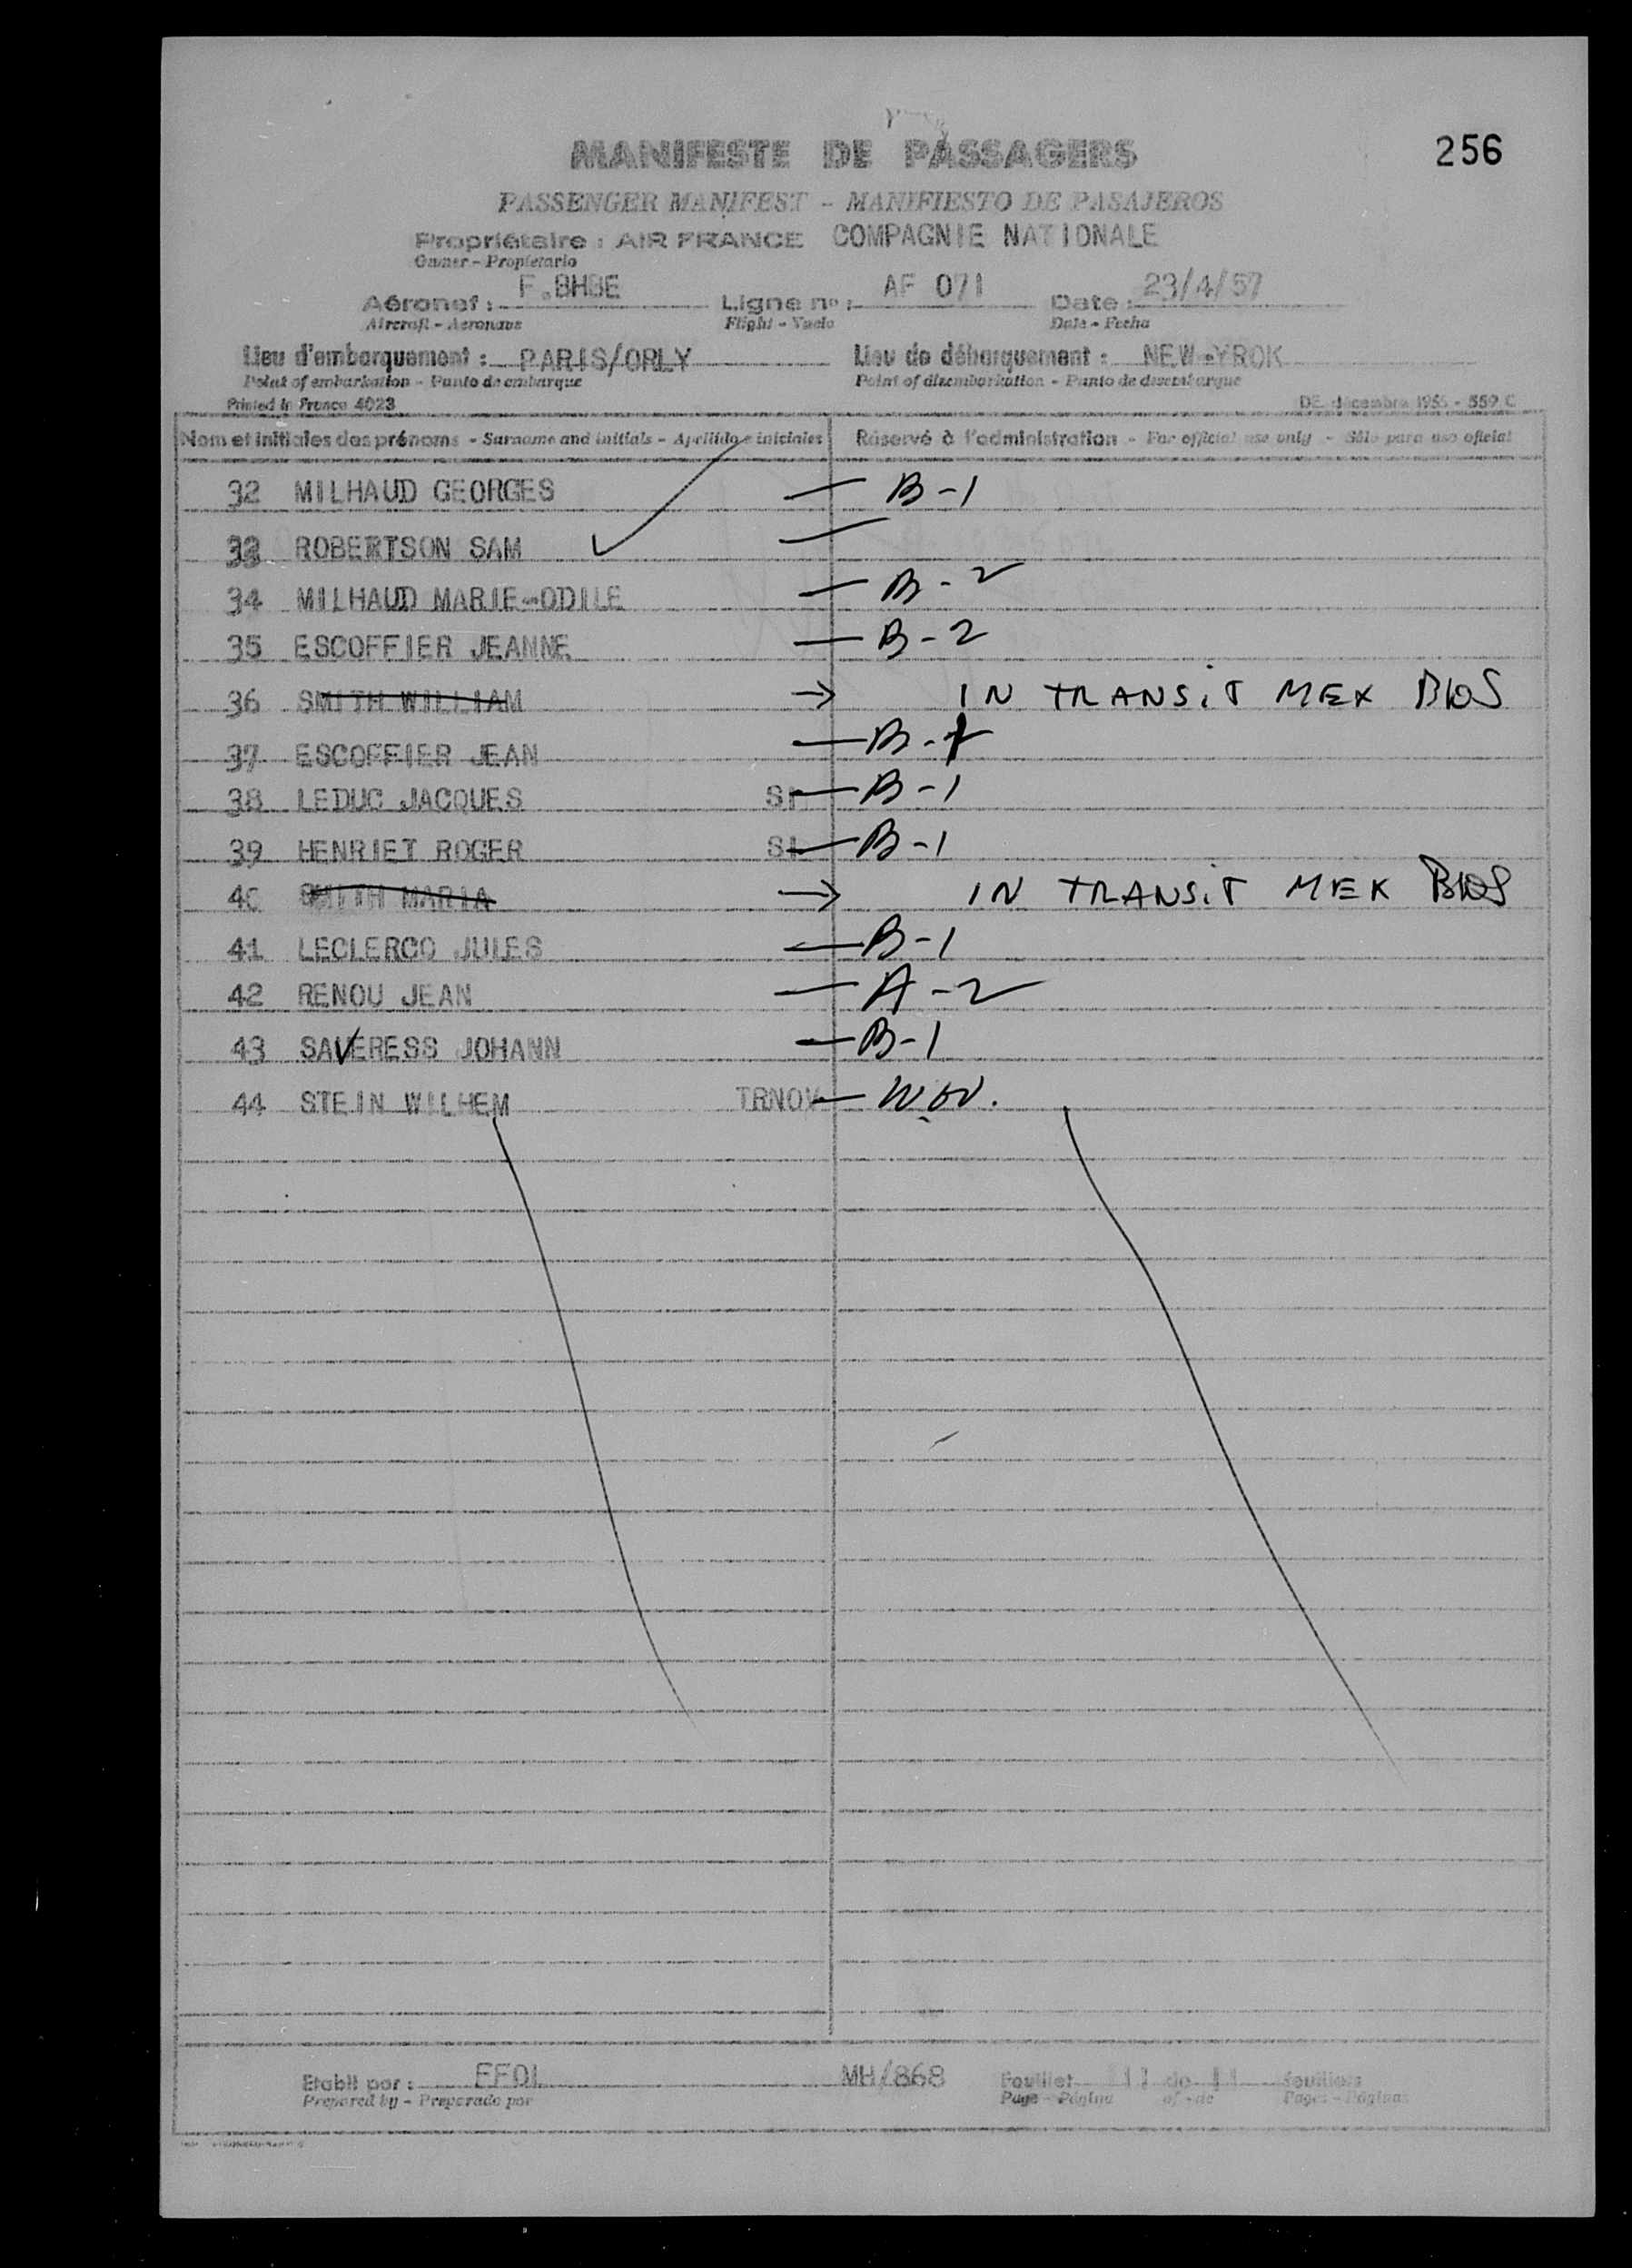 256
MANIFESTE DE PASSAGERS
PASSENGER MANIFEST - MANIFIESTO DE PASAJEROS
Propriétaire : AIR FRANCE COMPAGNIE NATIONALE
Owner - Propietario
Aéronef : F.BHBE Ligne nº : AF 071 Date : 23/4/57
Aircraft - Aeronave Flight - Vuelo Date - Fecha
Lieu d'embarquement : PARIS/ORLY Lieu de débarquement : NEW-YROK
Point of embarkation - Punto de embarque Point of disembarkation - Punto de desembarque
Printed in France 4023 DE. décembre 1955 - 559 C
Nom et initiales des prénoms - Surname and initials - Apellido e iniciales Réservé à l'administration - For official use only - Sólo para uso oficial
32 MILHAUD GEORGES — B-1
33 ROBERTSON SAM —
34 MILHAUD MARIE-ODILE — B-2
35 ESCOFFIER JEANNE — B-2
36 SMITH WILLIAM → IN TRANSIT MEX BDS
37 ESCOFFIER JEAN — B-1
38 LEDUC JACQUES SI — B-1
39 HENRIET ROGER SI — B-1
40 SMITH MARIA → IN TRANSIT MEX BDS
41 LECLERCQ JULES — B-1
42 RENOU JEAN — A-2
43 SAVERESS JOHANN — B-1
44 STEIN WILHEM TRNOV — WOV.
Etabli par : EFOL MH/868 Feuillet 11 de 11 feuillets
Prepared by - Preparado por Page - Página of - de Pages - Páginas